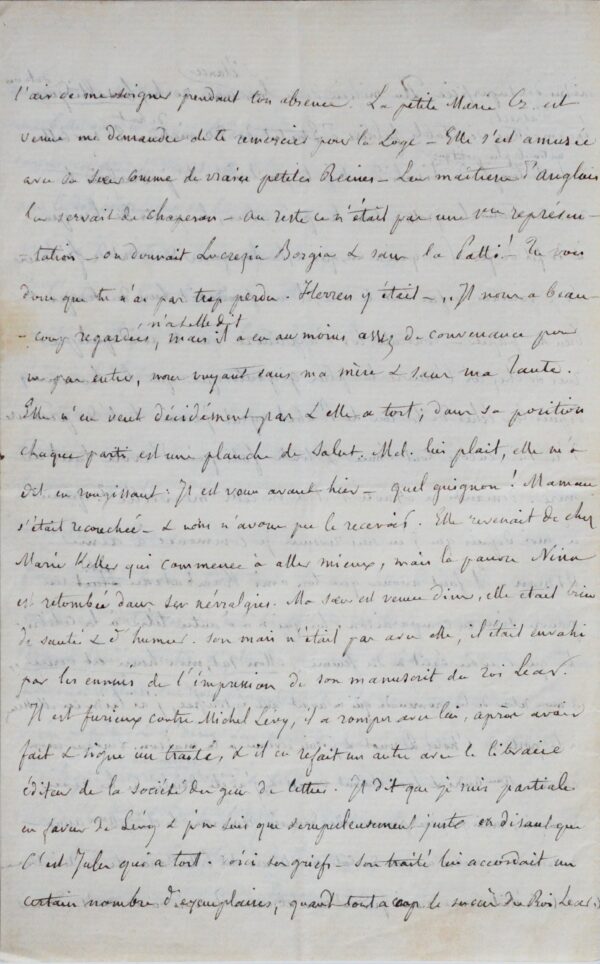 l'air de me soigner pendant ton absence. La petite Marie Cz. est
venue me demander de te remercier pour la Loge - Elle s'est amusée
avec sa sœur comme de vraies petites Reines - Leur maîtresse d'anglais
leur servait de chaperon - au reste ce n'était pas une 1ère représen-
-tation - on donnait Lucrezia Borgia & sans la Patti! Tu vois
donc que tu n'as pas trop perdu. Herren y était - "Il nous a beau-
m'a-t-elle dit
-coup regardées, mais il a eu au moins assez de convenance pour
ne pas entrer, nous voyant sans ma mère & sans ma tante.
Elle n'en veut décidément pas & elle a tort; dans sa position
chaque parti est une planche de salut. Mel. lui plait, elle m'a
dit en rougissant: Il est venu avant hier - quel guignon! Maman
s'était recouchée - & nous n'avons pu le recevoir. Elle revenait de chez
Marie Keller qui commence à aller mieux, mais la pauvre Nina
est retombée dans ses névralgies. Ma sœur est venue dîner, elle était bien
de santé & d'humeur. son mari n'était pas avec elle, il était envahi
par les ennuis de l'impression de son manuscrit du Roi Lear.
Il est furieux contre Michel Lévy, il a rompu avec lui, après avoir
fait & signé un traité, & il en refait un autre avec le libraire
éditeur de la société des gens de lettres. Il dit que je suis partiale
en faveur de Lévy & je ne suis que scrupuleusement juste en disant que
C'est Jules qui a tort. voici ses griefs - son traité lui accordait un
certain nombre d'exemplaires, quand tout a coup le succès du Roi Lear,